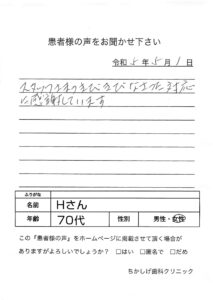 患者様の声をお聞かせ下さい
令和 5 年 5 月 1 日
スタッフさまのきびきびなさった対応
に感謝しています
ふりがな
名前 Hさん
年齢 70代 性別 男性・女性
この『患者様の声』をホームページに掲載させて頂く場合が
ありますがよろしいでしょうか? □はい □匿名で □だめ
ちかしげ歯科クリニック